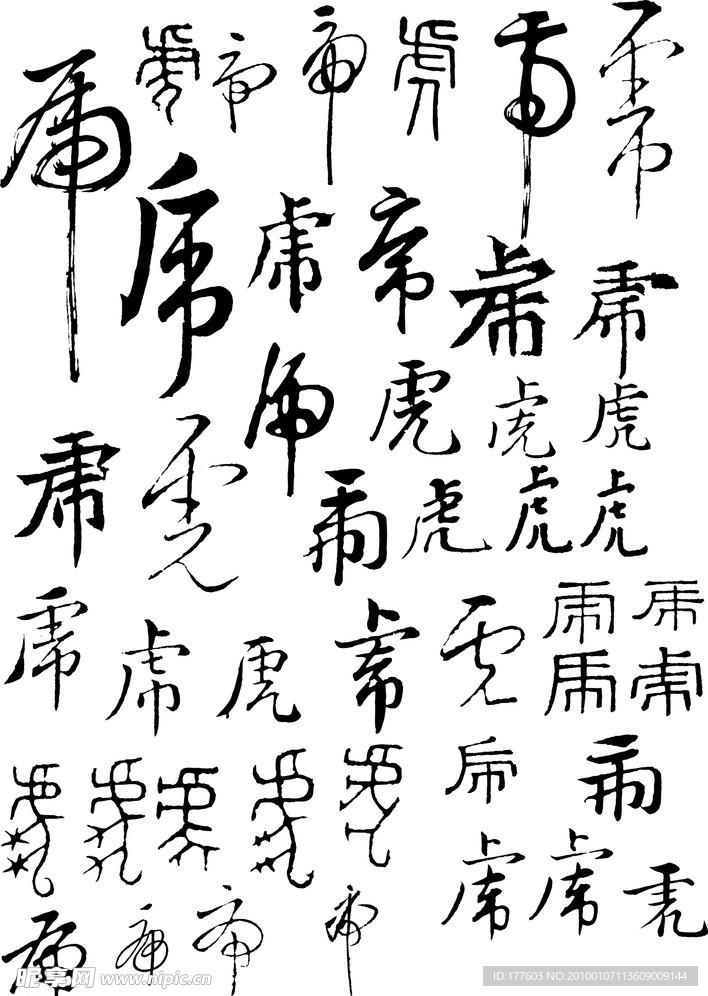 虎 虎 虎 虎 虎 虎 虎
虎 虎 虎 虎 虎
虎 虎 虎 虎
虎 虎 虎 虎 虎 虎
虎 虎 虎 虎 虎 虎 虎
虎 虎
虎 虎 虎 虎 虎 虎 虎
虎 虎 虎
虎 虎 虎 虎
昵享网 www.nipic.cn
ID:177603 NO:20100107113609009144